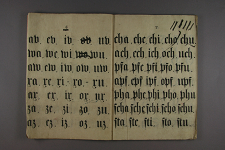 av. ev. iv. ov. uv.
wa. we. wi. wo. wu.
aw. ew. iw. ow. uw.
xa. xe. xi. xo. xu.
ax. ex. ix. ox. ux.
za. ze. zi. zo. zu.
az. ez. iz. oz. uz.
cha. che. chi. cho. chu.
ach. ech. ich. och. uch.
pfa. pfe. pfi. pfo. pfu.
apf. epf. ipf. opf. upf.
pha. phe. phi. pho. phu.
scha. sche. schi. scho. schu.
sta. ste. sti. sto. stu.